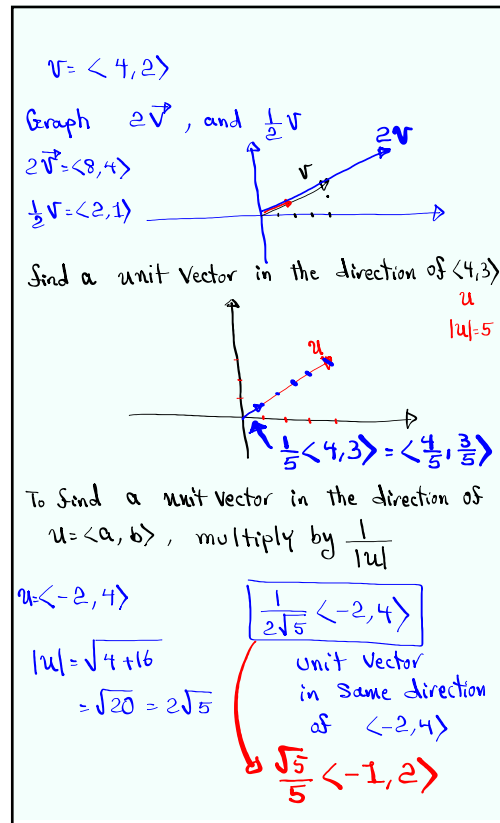 v = < 4, 2>
Graph 2v⃗ , and 1/2 v
2v⃗ = <8,4>
1/2 v = <2,1>
2v
v
find a unit vector in the direction of <4,3>
u
|u|=5
u
1/5 <4,3> = <4/5, 3/5>
To find a unit vector in the direction of
u = <a, b> , multiply by 1/|u|
u=<-2,4>
|u| = √4+16
= √20 = 2√5
1/2√5 <-2,4>
unit vector
in same direction
of <-2,4>
√5/5 <-1,2>